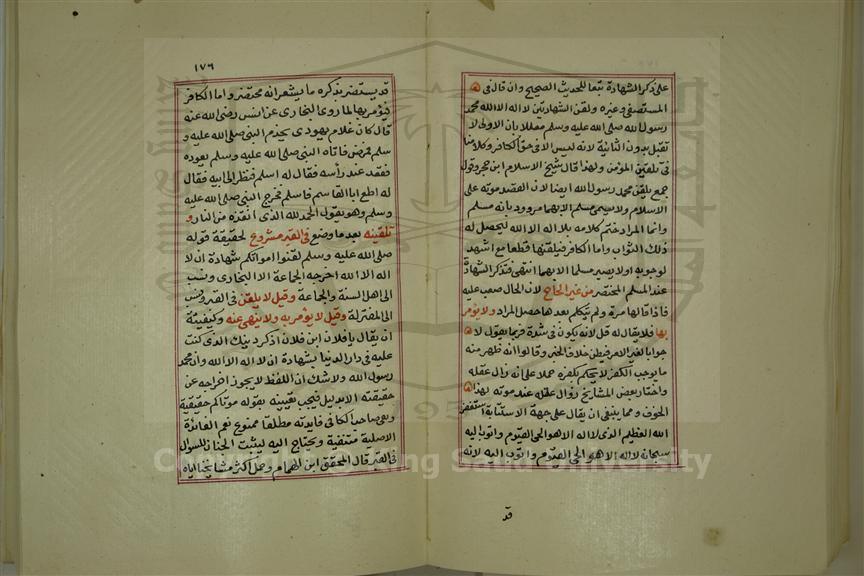 على ذكر الشهادة تبعا للحديث الصحيح وان قال في
المستصفى وغيره ولقن الشهادتين لا اله الا الله محمد
رسول الله صلى الله عليه وسلم معللا بان الاولى لا
تقبل بدون الثانية لانه ليس الا في حق الكافر وكلامنا
في تلقين المؤمن ولهذا قال شيخ الاسلام ابن حجر وقول
جمع يلقن محمد رسول الله ايضا لان القصد موته على
الاسلام ولا يسمى مسلم الا بهما مردود بانه مسلم
وانما المراد ختم كلامه بلا اله الا الله ليحصل له
ذلك الثواب واما الكافر فيلقنها قطعا مع اشهد
لوجوبه اولا يصير مسلما الا بهما انتهى فتذكر الشهادة
عند المسلم المحتضر من غير الحاح لان الحال صعب عليه
فاذا قالها مرة ولم يتكلم بعدها حصل المراد ولا يؤمر
بها فلا يقال له قل لانه يكون في شدة فربما يقول لا
جوابا لغير الامر فيظن خلاف الخير وقالوا انه ظهر منه
ما يوجب الكفر لا يحكم بكفره حملا على انه زال عقله
واختار بعض المشايخ زوال عقله عند موته لهذا
الخوف ومما ينبغي ان يقال على جهة الاستتابة استغفر
الله العظيم الذي لا اله الا هو الحي القيوم واتوب اليه
سبحانه لا اله الا هو الحي القيوم واتوب اليه لانه
قد
١٧٦
قد يستضر بذكره ما يشعر انه محتضر واما الكافر
فيؤمر بها لما روى البخاري عن انس رضي الله عنه
قال كان غلام يهودي يخدم النبي صلى الله عليه و
سلم فمرض فاتاه النبي صلى الله عليه وسلم يعوده
فقعد عند رأسه فقال له اسلم فنظر الى ابيه فقال
له اطع ابا القاسم فاسلم فخرج النبي صلى الله عليه
وسلم وهو يقول الحمد لله الذي انقذه من النار و
تلقينه بعد ما وضع في القبر مشروع لحقيقة قوله
صلى الله عليه وسلم لقنوا امواتكم شهادة ان لا
اله الا الله اخرجه الجماعة الا البخاري ونسب
الى اهل السنة والجماعة وقيل لا يلقن في القبر ونسب
الى المعتزلة وقيل لا يؤمر به ولا ينهى عنه وكيفيته
ان يقال يا فلان ابن فلان اذكر دينك الذي كنت
عليه في دار الدنيا بشهادة ان لا اله الا الله وان محمد
رسول الله ولا شك ان اللفظ لا يجوز اخراجه عن
حقيقته الا بدليل فيجب تعيينه بقوله موتاكم حقيقية
ونفي صاحب الكافي فايدته مطلقا ممنوع نعم الفائدة
الاصلية منتفية ويحتاج اليه ليثبت الجنان للسؤال
في القبر قال المحقق ابن الهمام وحمل اكثر مشايخنا اياه
Copyright © King Saud University